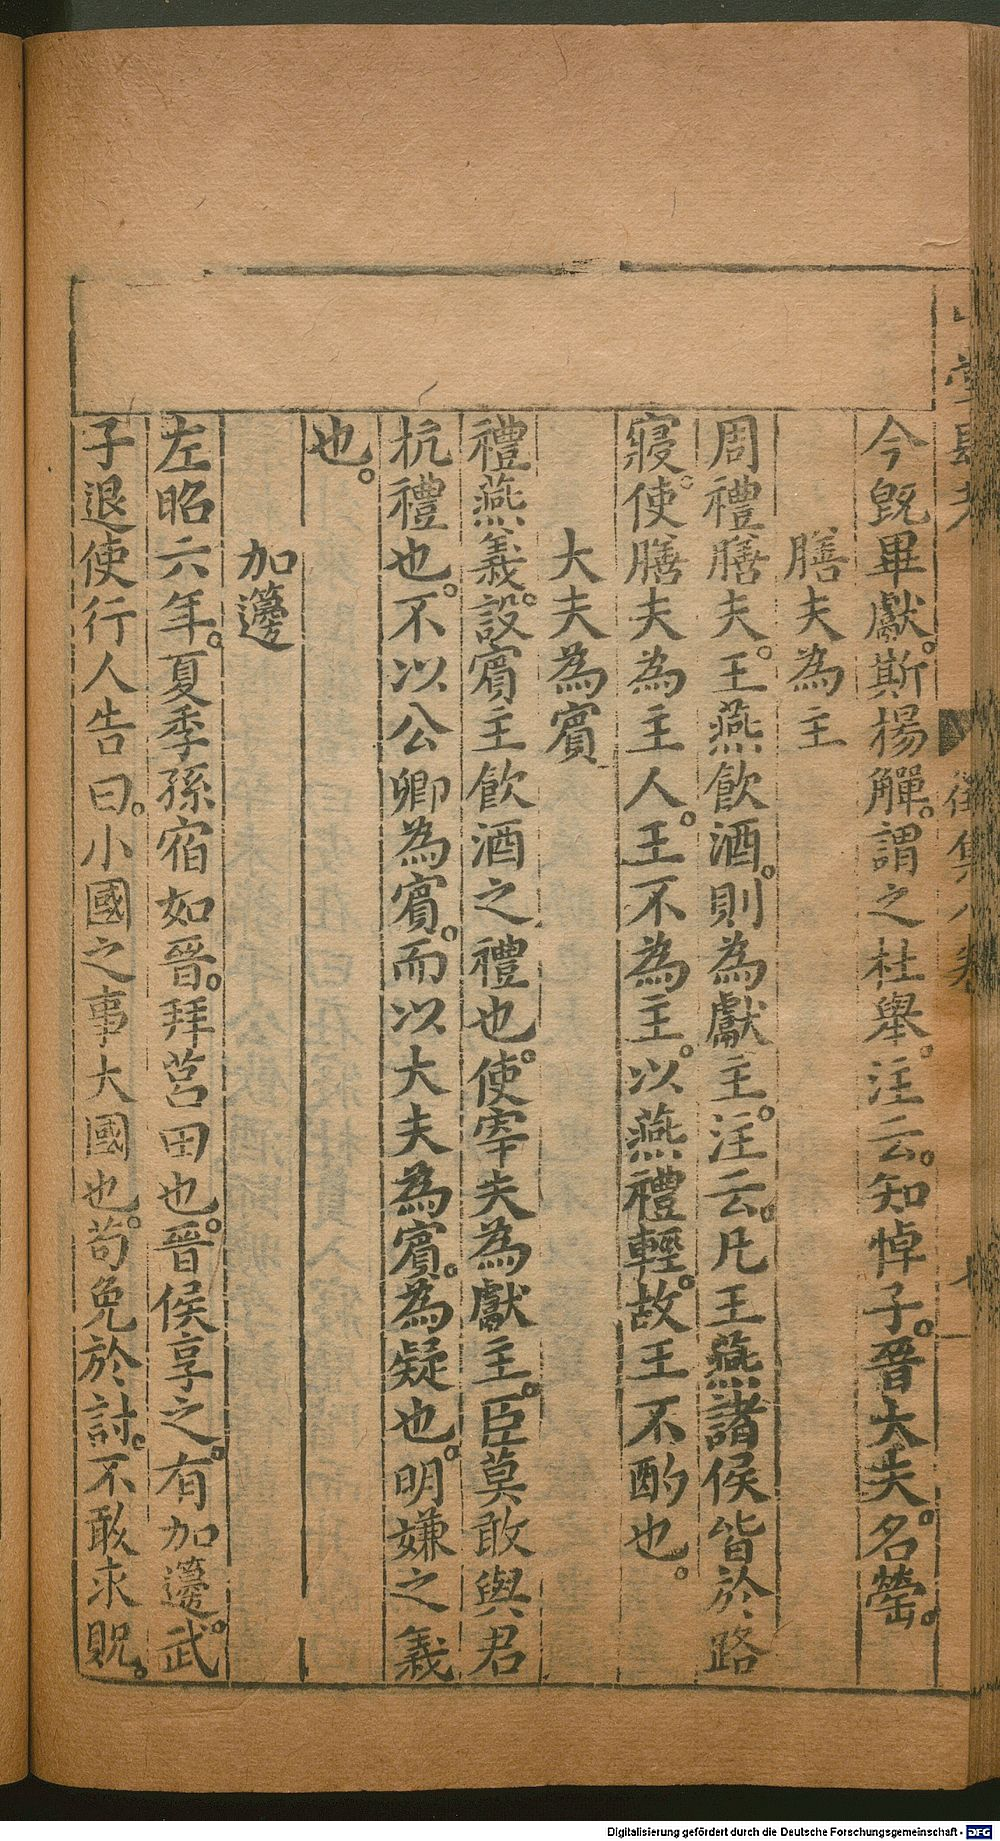 山堂肆考 徵集八卷
今既畢獻。斯楊觶。謂之杜舉。注云。知悼子。晉大夫。名罃。
膳夫為主
周禮膳夫。王燕飲酒。則為獻主。注云。凡王燕諸侯皆於路
寢。使膳夫為主人。王不為主。以燕禮輕。故王不酌也。
大夫為賓
禮燕義。設賓主飲酒之禮也。使宰夫為獻主。臣莫敢與君
抗禮也。不以公卿為賓。而以大夫為賓。為疑也。明嫌之義
也。
加籩
左昭六年。夏季孫宿如晉。拜莒田也。晉侯享之。有加籩。武
子退使行人告曰。小國之事大國也。苟免於討。不敢求貺。
Digitalisierung gefördert durch die Deutsche Forschungsgemeinschaft - DFG